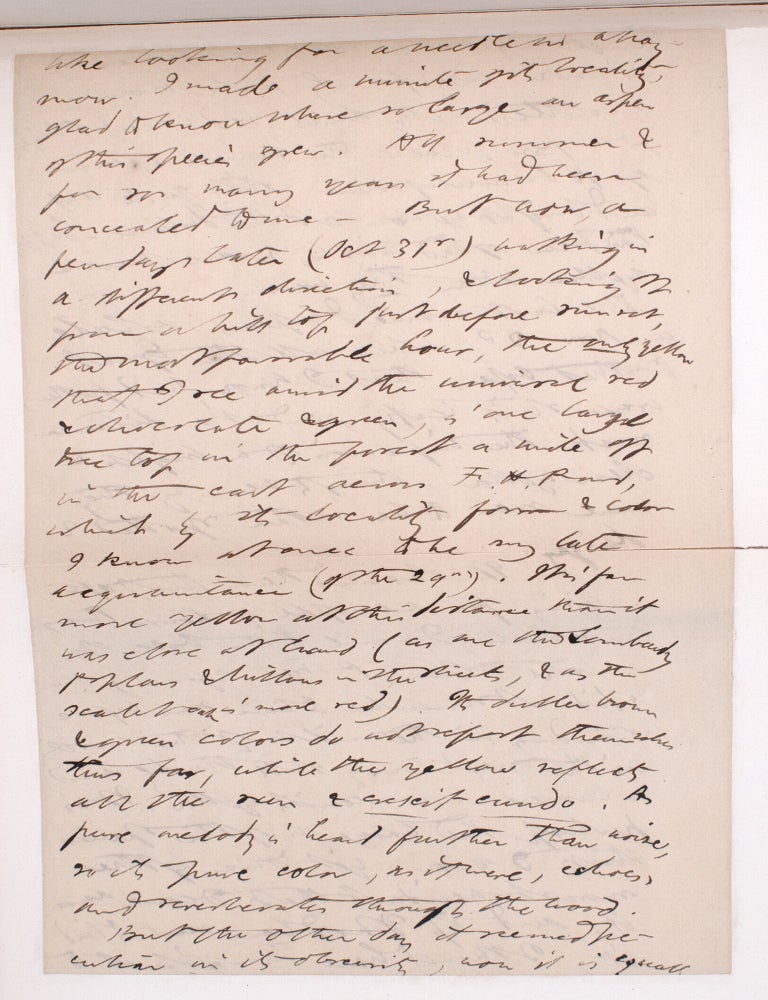 like looking for a needle in a hay-
mow. I made a minute of its locality,
glad to know where so large an aspen
of this species grew. All summer &
for so many years it had been
concealed to me — But now, a
few days later (Oct 31st) walking in
a different direction, & looking
from a hill top just before sunset,
the most favorable hour, the only yellow
that I see amid the universal red
& chocolate & green, is one large
tree top in the forest a mile off
in the east across F. H. Pond,
which by its locality form & color
I know at once to be my late
acquaintance (of the 29th). It is far
more yellow at this distance than it
was close at hand (as are the Lombardy
Poplars & buttons in the streets, & as the
scarlet oak is more red). Its duller brown
& green colors do not report themselves
thus far, while the yellow reflects
all the sun & crescit eundo. As
pure melody is heard further than noise,
so its pure color, as it were, echoes
and reverberates through the wood.
But the other day it seemed pe-
culiar in its obscurity, now it is equally